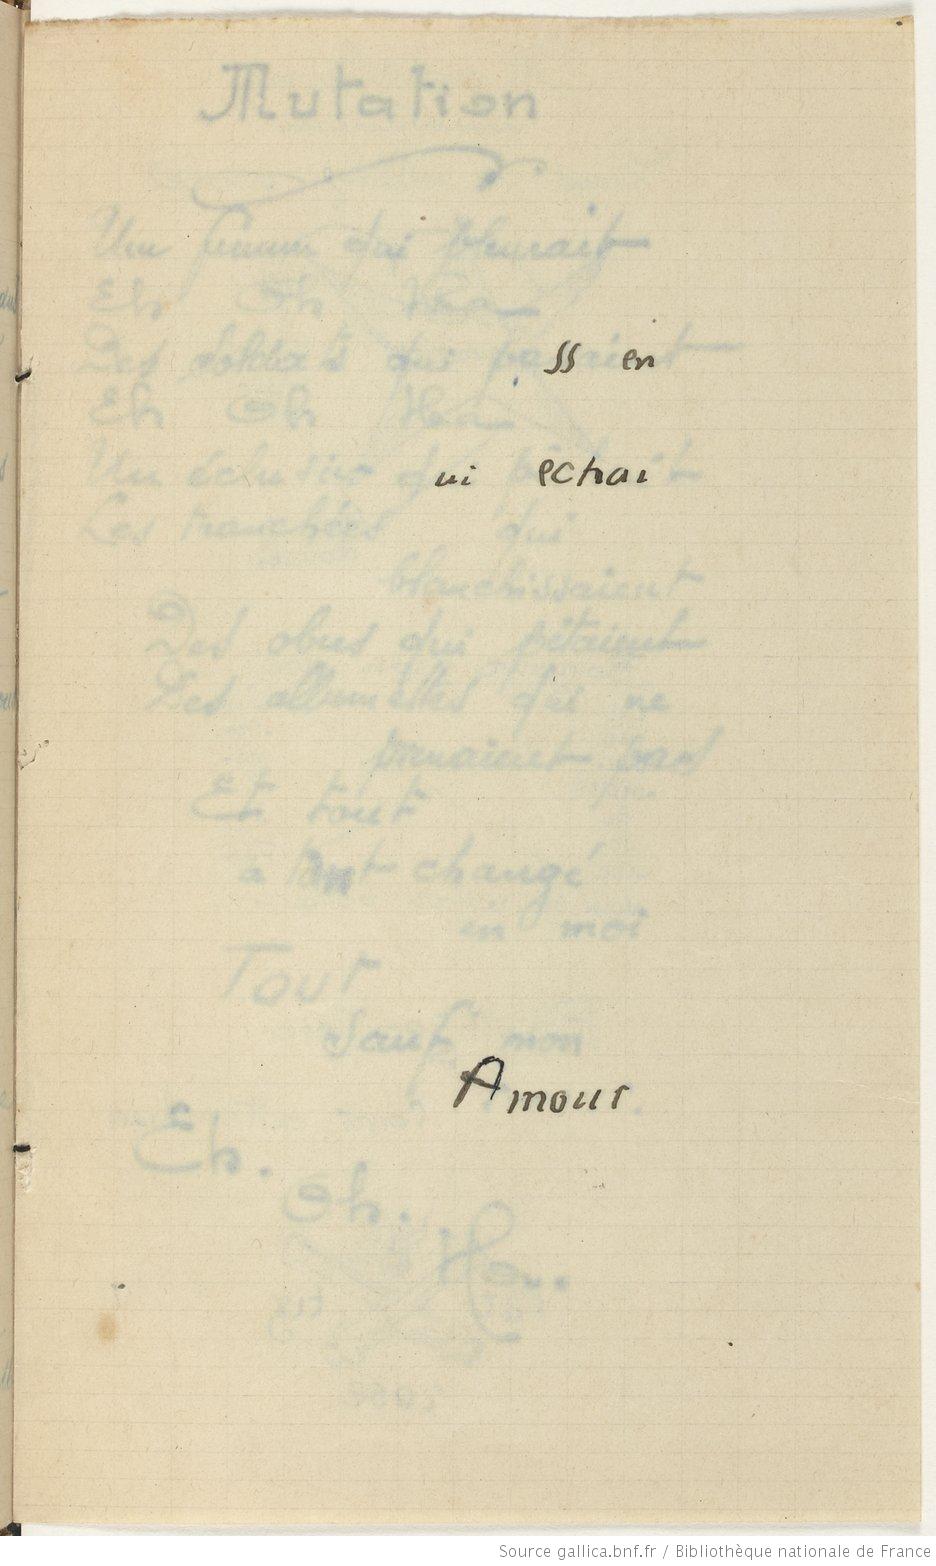 Mutation
Une femme qui pleurait
Eh Oh Ha
Des soldats qui passaient
Eh Oh Ha
Un éclusier qui pêchait
Les tranchées qui
blanchissaient
Des obus qui pétaient
Des allumettes qui ne
prenaient pas
Et tout
a tant changé
en moi
Tout
Sauf mon
Amour
Eh.
Oh.
Ha.
Source gallica.bnf.fr / Bibliothèque nationale de France